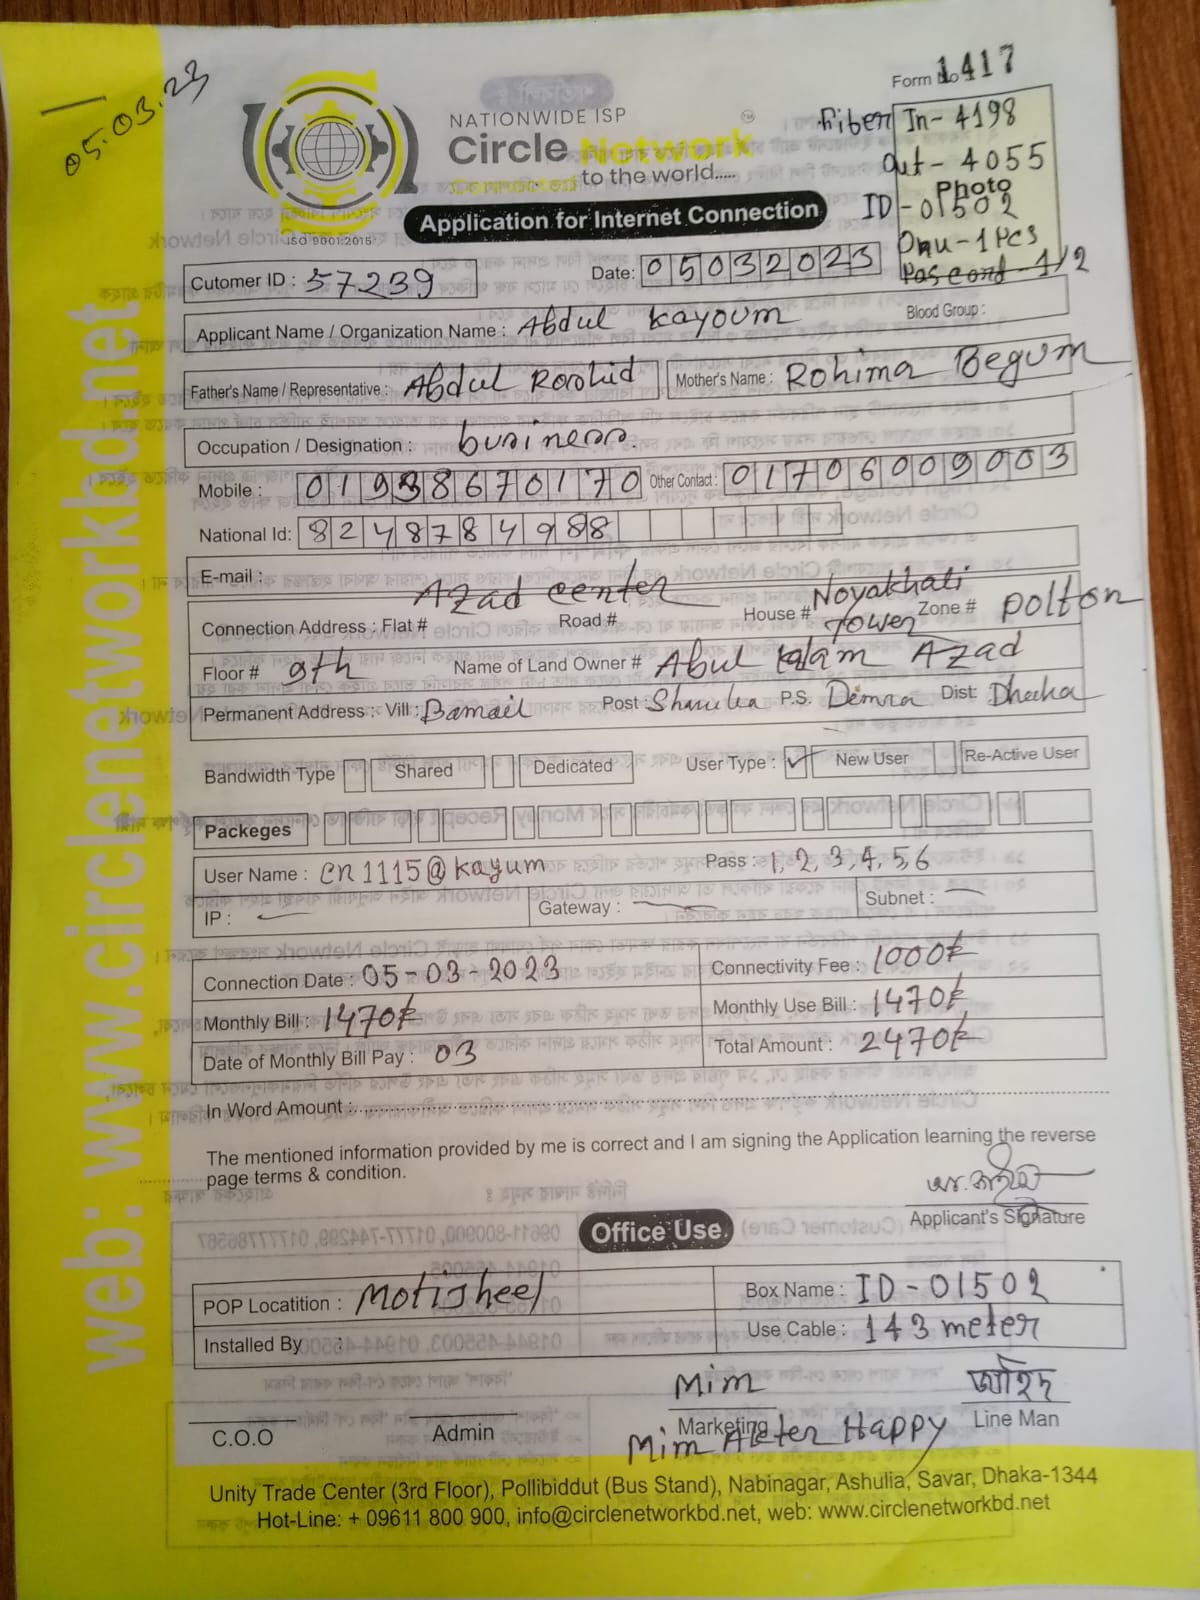 05.03.23
Form No 1417
NATIONWIDE ISP
Circle Network
to the world.....
ISO 9001:2015
Application for Internet Connection
Fiber In- 4198
out- 4055
Photo
ID-01502
Onu-1Pcs
1/2
Cutomer ID : 57239
Date: 05032023
Applicant Name / Organization Name : Abdul Kayoum
Blood Group :
Father's Name / Representative : Abdul Roshid Mother's Name : Rohima Begum
Occupation / Designation : business.
Mobile : 01938670170 Other Contact : 01706009003
National Id: 8248784988
E-mail :
Azad center Noyakhali
Connection Address : Flat # Road # House # Tower Zone # polton
Floor # 9th Name of Land Owner # Abul kalam Azad
Permanent Address : Vill : Bamail Post : P.S. Demra Dist: Dhaka
Bandwidth Type Shared Dedicated User Type : ✓ New User Re-Active User
Packeges
User Name : cn1115@kayum Pass : 1,2,3,4,5,6
IP : Gateway : Subnet :
Connection Date : 05-03-2023 Connectivity Fee : 1000৳
Monthly Bill : 1470৳ Monthly Use Bill : 1470৳
Date of Monthly Bill Pay : 03 Total Amount : 2470৳
In Word Amount :
The mentioned information provided by me is correct and I am signing the Application learning the reverse
page terms & condition.
Applicant's Signature
Office Use.
POP Locatition : Motijheel Box Name : ID-01502
Installed By : Use Cable : 143 meter
Mim জাহিদ
C.O.O Admin Marketing Line Man
Mim Akter Happy
Unity Trade Center (3rd Floor), Pollibiddut (Bus Stand), Nabinagar, Ashulia, Savar, Dhaka-1344
Hot-Line: + 09611 800 900, info@circlenetworkbd.net, web: www.circlenetworkbd.net
web: www.circlenetworkbd.net